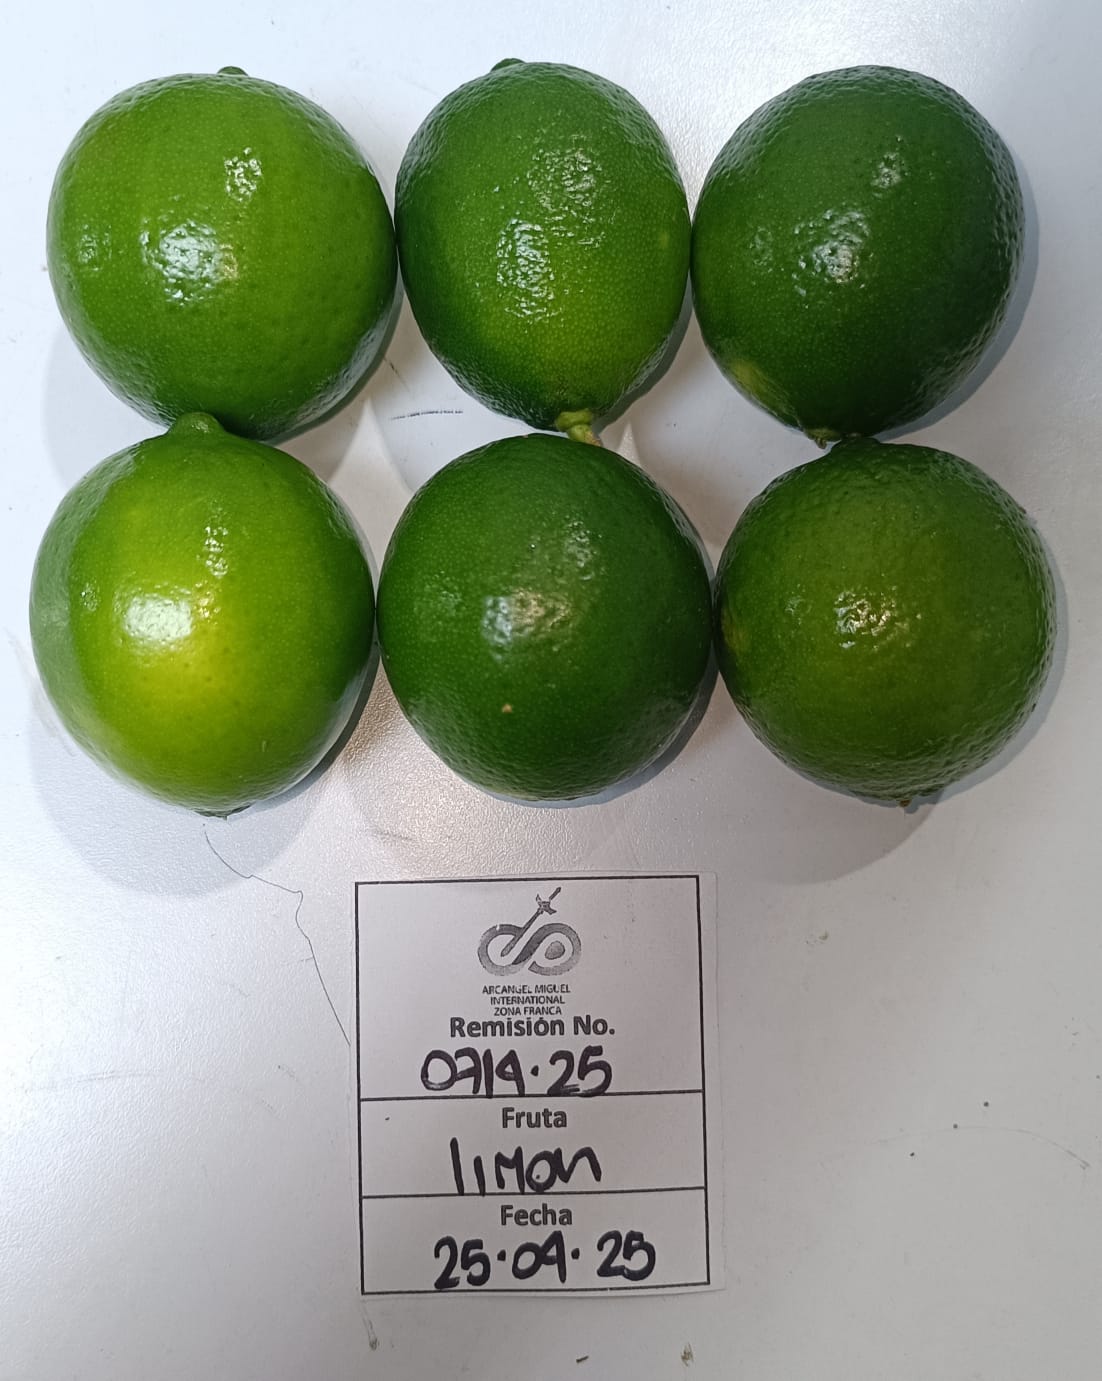 ARCANGEL MIGUEL
INTERNATIONAL
ZONA FRANCA
Remisión No.
0714·25
Fruta
limon
Fecha
25·04·25